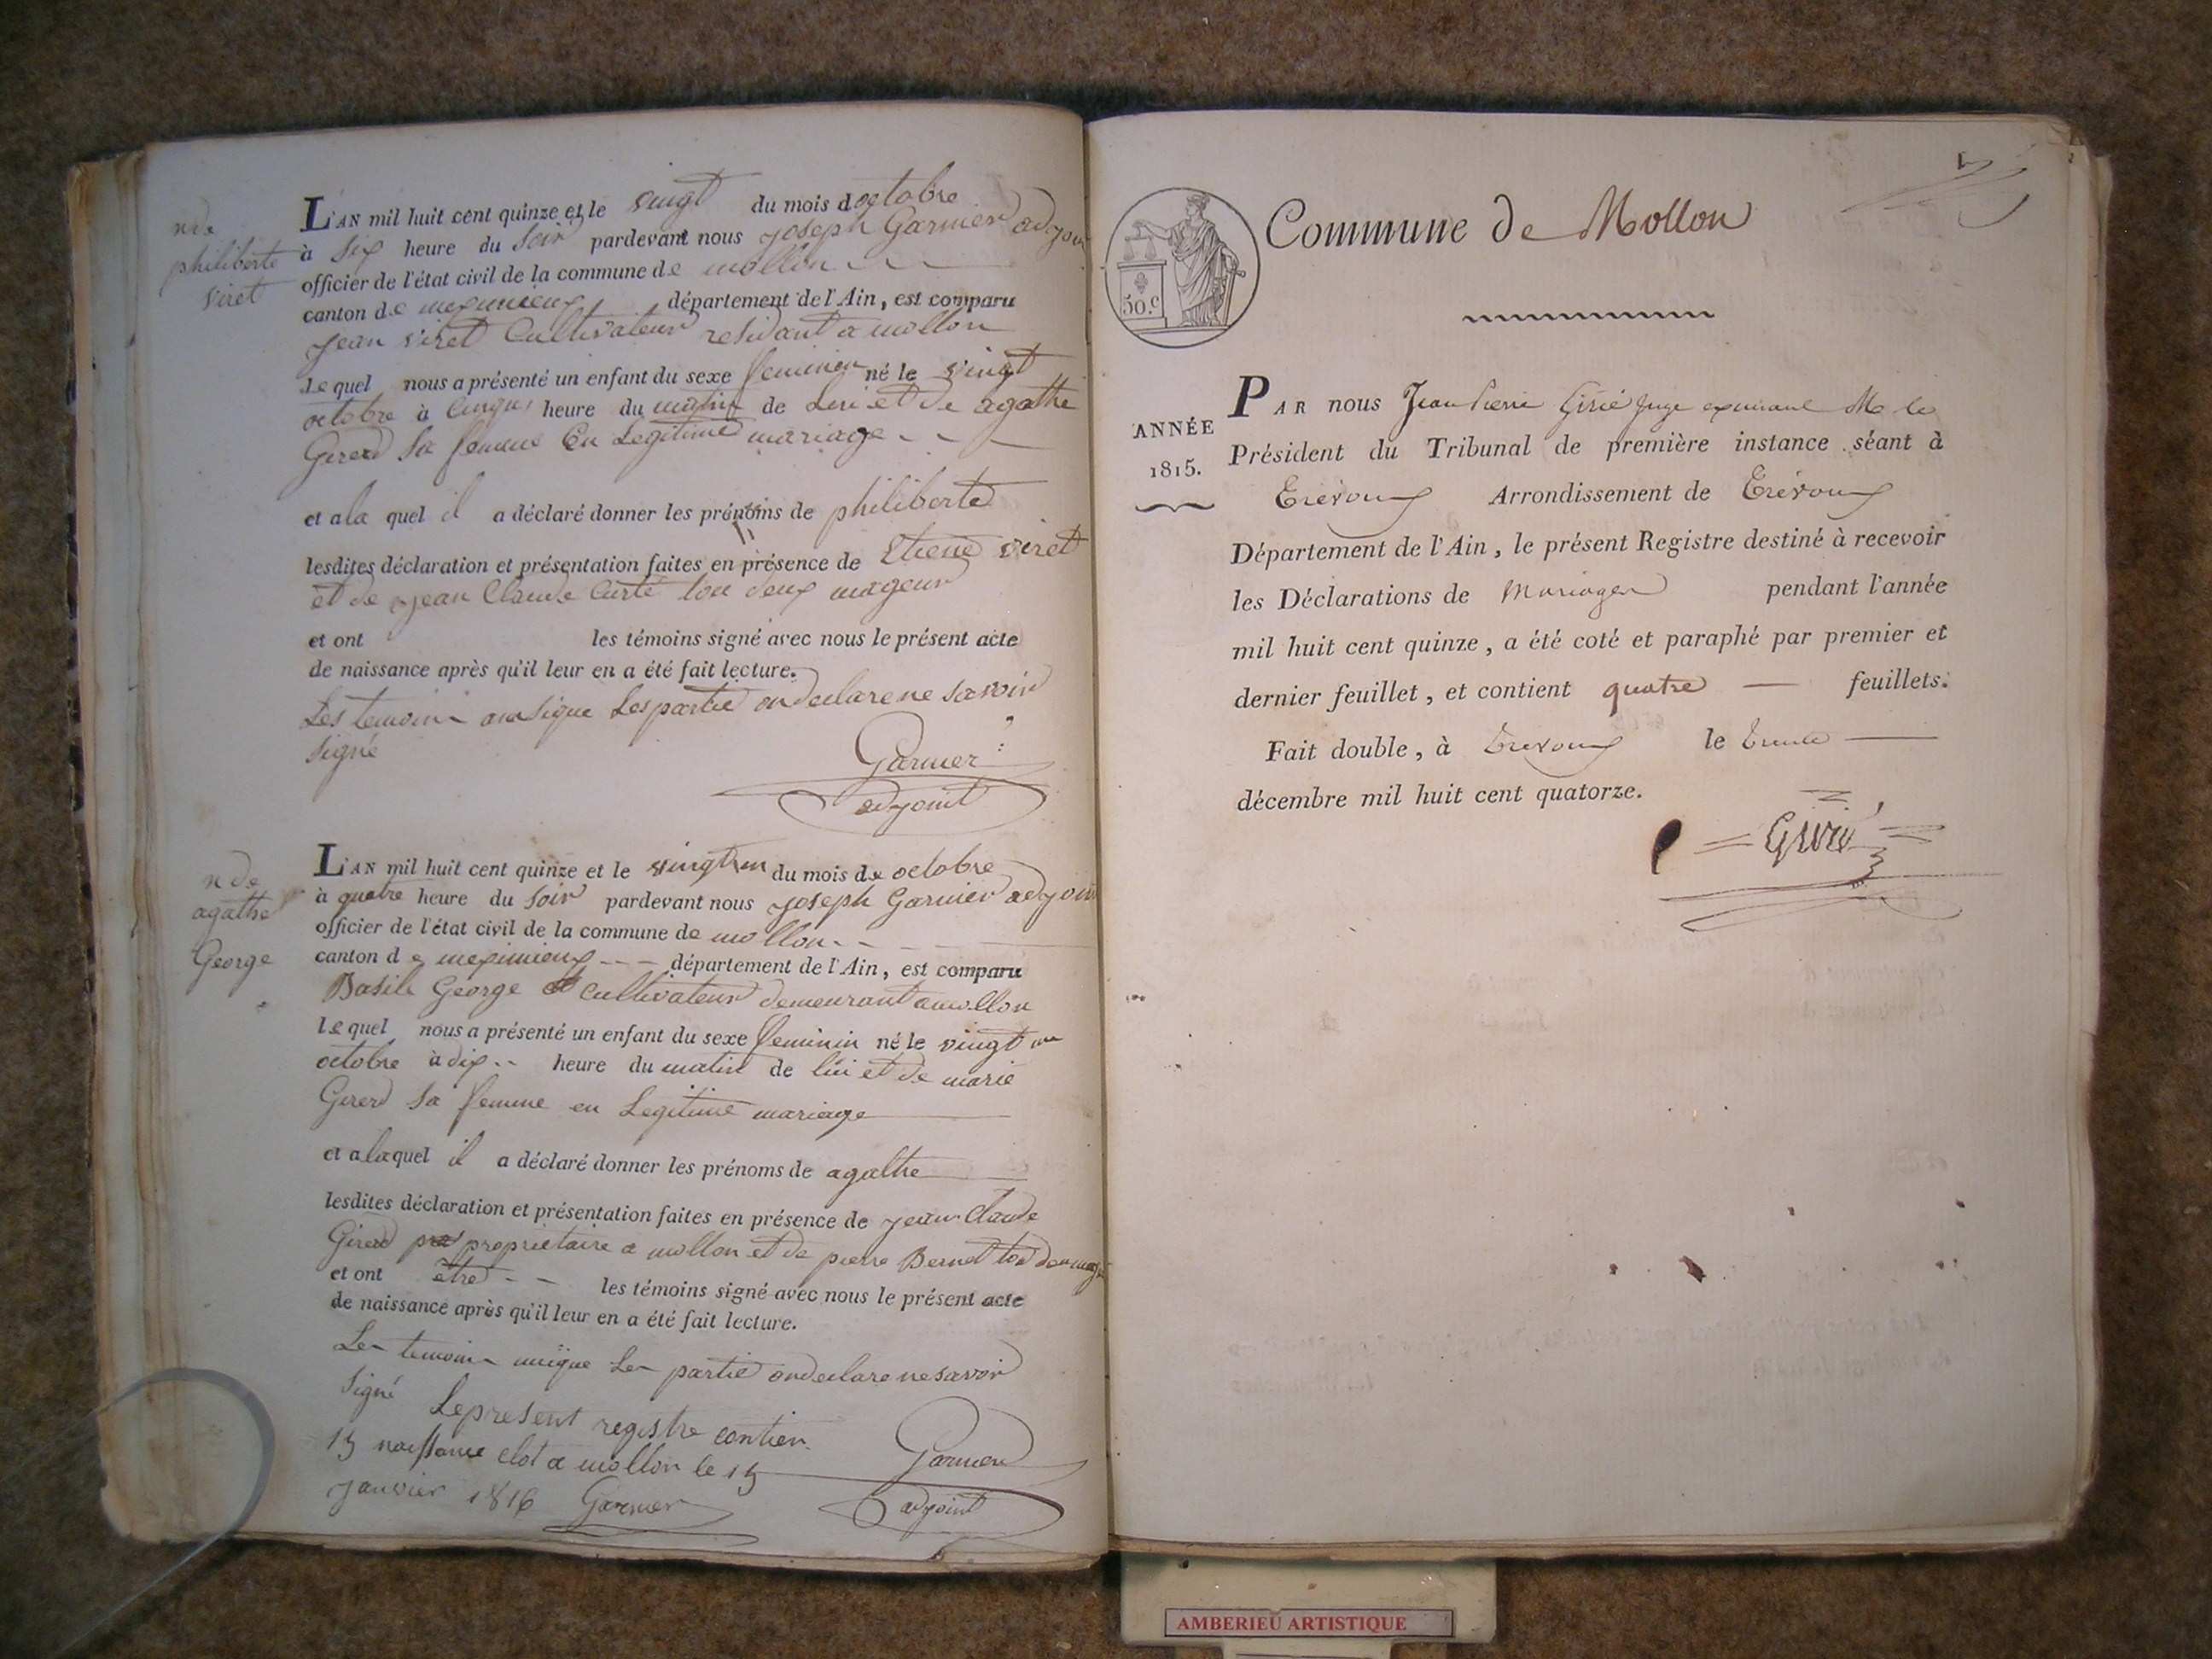 nde
philiberte
viret
L'AN mil huit cent quinze et le vingt du mois doctobre
à six heure du soir pardevant nous joseph Garnier adjoin
officier de l'état civil de la commune de mollon
canton de meximieux département de l'Ain, est comparu
jean viret Cultivateur residant a mollon
Le quel nous a présenté un enfant du sexe feminin né le vingt
octobre à cinqus heure du matin de Lui et de agathe
Gererd sa femme En Legitime mariage
et a la quel il a déclaré donner les prénoms de philiberte
lesdites déclaration et présentation faites en présence de Etiene viret
et de jean Claude Curté tou deux mageur
et ont les témoins signé avec nous le présent acte
de naissance après qu'il leur en a été fait lecture.
Les temoin Les partie on declare ne savoir
signé
Garnier
adjoint
n de
agathe
George
L'AN mil huit cent quinze et le vingt un du mois de octobre
à quatre heure du soir pardevant nous joseph Garnier adjoin
officier de l'état civil de la commune de mollon
canton de meximieux département de l'Ain, est comparu
Basile George cultivateur demeurant a mollon
le quel nous a présenté un enfant du sexe feminin né le vingt un
octobre à dix heure du matin de lui et de marie
Gererd sa femme en Legitime mariage
et a laquel il a déclaré donner les prénoms de agathe
lesdites déclaration et présentation faites en présence de jean Claude
Girerd propriétaire a mollon et de pierre Bernet tou deu
et ont etre les témoins signé avec nous le présent acte
de naissance après qu'il leur en a été fait lecture.
Les temoin Les partie on declare ne savoir
signé
Le present registre contien
15 naissance clot a mollon le 15
janvier 1816 Garnier
Garnier
adjoint
1
50.c
Commune de Mollon
ANNÉE
1815.
PAR nous Jean Pierre Givré juge M le
Président du Tribunal de première instance séant à
Trévoux Arrondissement de Trévoux
Département de l'Ain, le présent Registre destiné à recevoir
les Déclarations de Mariages pendant l'année
mil huit cent quinze, a été coté et paraphé par premier et
dernier feuillet, et contient quatre — feuillets.
Fait double, à Trevoux le trente
décembre mil huit cent quatorze.
Givré
AMBERIEU ARTISTIQUE